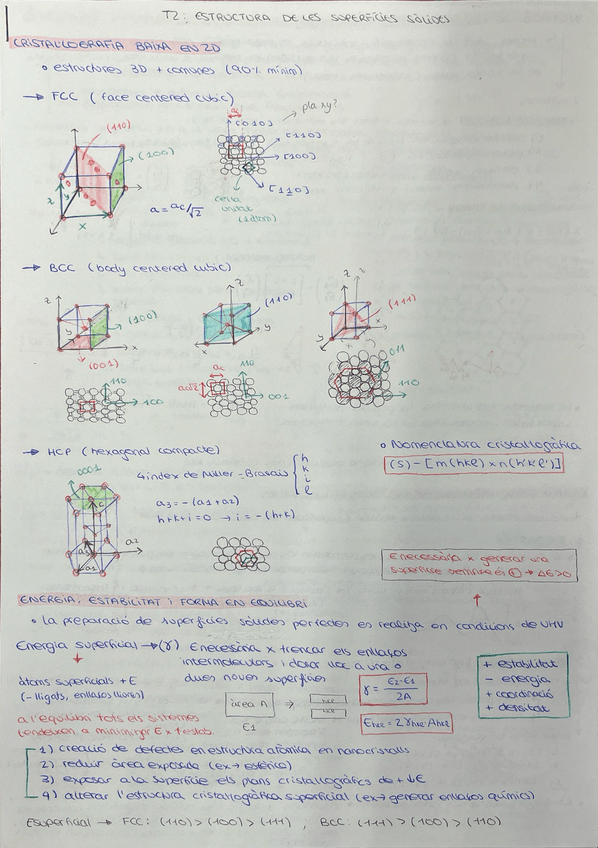 T2: ESTRUCTURA DE LES SUPERFÍCIES SÒLIDES
CRISTAL·LOGRAFIA BAIXA EN 2D
• estructures 3D + comunes (90% mínim)
→ FCC (face centered cubic)
(110)
(100)
z
y
x
a = ac/√2
ac
[010]
pla xy?
[110]
[100]
[1̲10]
cel·la unitat (1 àtom)
→ BCC (body centered cubic)
z
(100)
y
x
(001)
110
100
z
(110)
y
ac
ac√2
110
001
z
(111)
x
y
011
110
→ HCP (hexagonal compacte)
0001
c
a3
a2
a1
4 índex de Miller-Bravais { h k i l
a3 = -(a1+a2)
h+k+i=0 → i=-(h+k)
• Nomenclatura cristal·logràfica
(S) - [m(hkl) x n(h'k'l')]
E necessària x generar una
superfície sempre és ⊕ → ΔG>0
ENERGIA, ESTABILITAT i FORMA EN EQUILIBRI
• la preparació de superfícies sòlides perfectes es realitza en condicions de UHV
Energia superficial → (γ) E necessària x trencar els enllaços
intermoleculars i donar lloc a una o
dues noves superfícies
àtoms superficials +E
(- lligats, enllaços lliures)
àrea A
E1
γ = E2-E1 / 2A
Ehkl = 2γhkl·Ahkl
+ estabilitat
- energia
+ coordinació
+ densitat
a l'equilibri tots els sistemes
tendeixen a minimitzar E x + estab.
1) creació de defectes en estructura atòmica en nanocristalls
2) reduir àrea exposada (ex → esfèrica)
3) exposar a la superfície els plans cristal·logràfics de + ↓E
4) alterar l'estructura cristal·logràfica superficial (ex → generar enllaços químics)
Esuperficial → FCC: (110) > (100) > (111), BCC: (111) > (100) > (110)